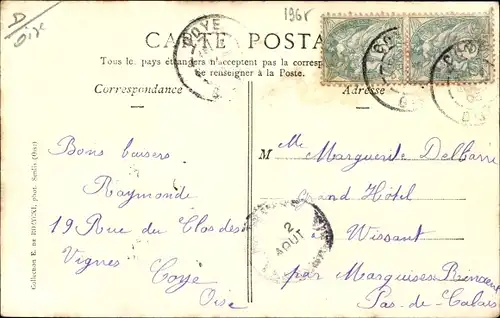 Oise
1968
CARTE POSTA
Tous les pays étrangers n'acceptent pas la corresp
se renseigner à la Poste.
Correspondance
Adresse
COYE
Bons baisers
Raymonde
19 Rue du Clos des
Vignes Coye
Oise
M
elle Marguerite Delbarre
Grand Hôtel
à Wissant
par Marquises Rinxent
Pas-de-Calais
2
AOUT
Collection E. de BRUYNE, phot. Senlis (Oise)